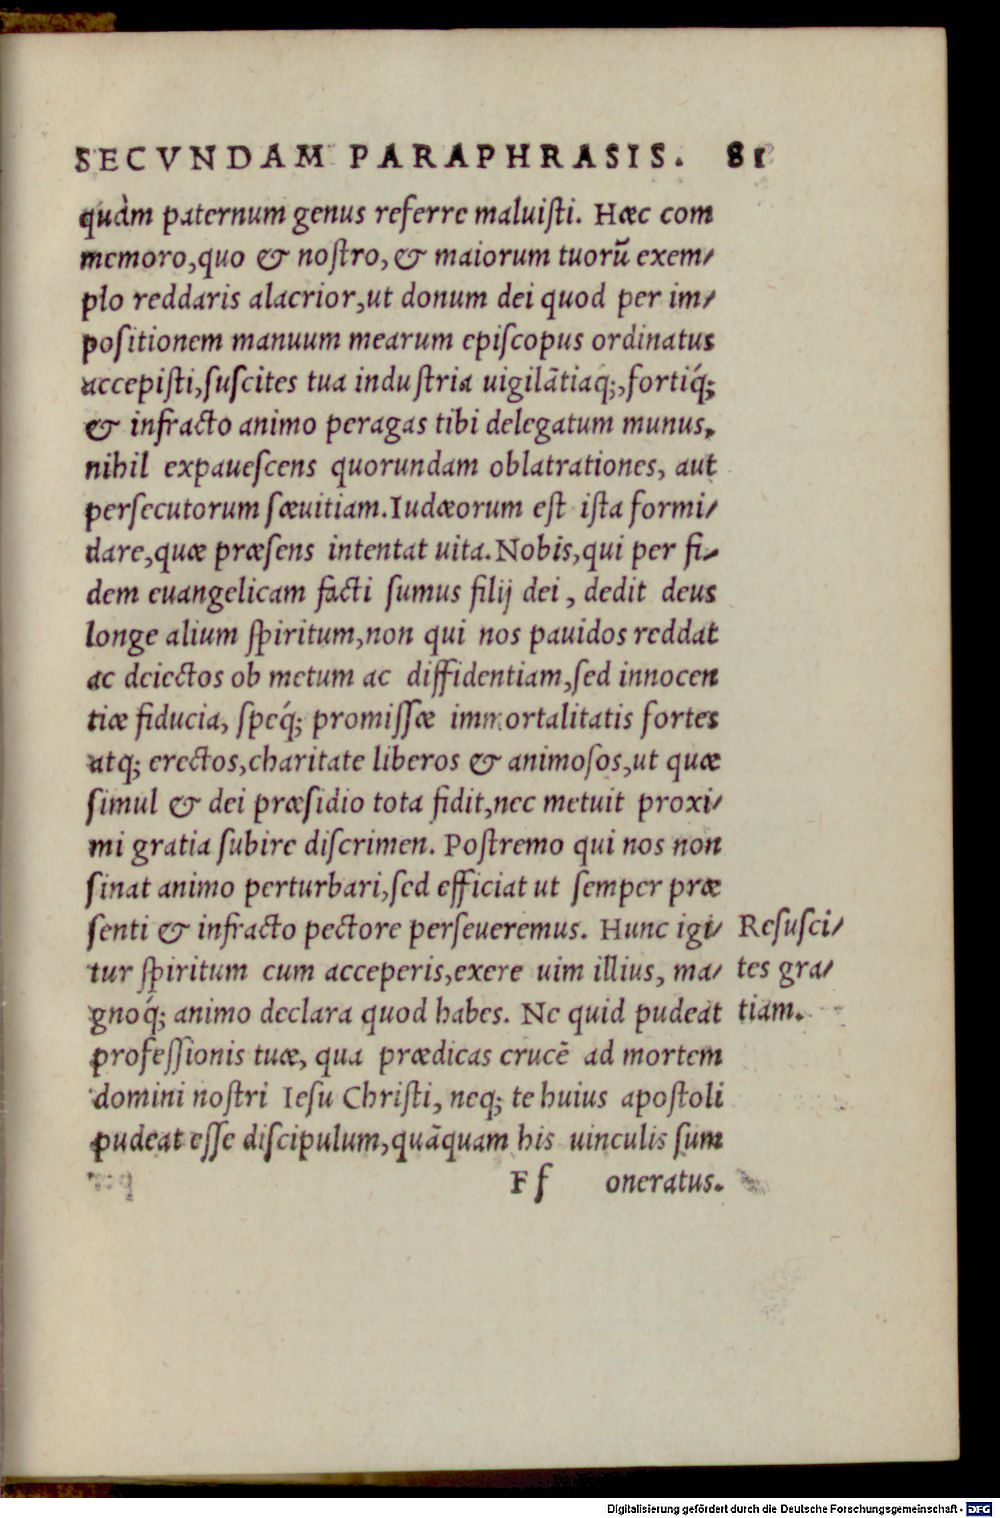 SECVNDAM PARAPHRASIS. 81
quàm paternum genus referre maluiſti. Hæc com
memoro,quo & noſtro,& maiorum tuorũ exem-
plo reddaris alacrior,ut donum dei quod per im-
poſitionem manuum mearum epiſcopus ordinatus
accepiſti,ſuſcites tua induſtria uigilãtiaq;,fortiq́;
& infracto animo peragas tibi delegatum munus,
nihil expaueſcens quorundam oblatrationes, aut
perſecutorum ſæuitiam.Iudæorum eſt iſta formi-
dare,quæ præſens intentat uita.Nobis,qui per fi-
dem euangelicam facti ſumus filij dei, dedit deus
longe alium ſpiritum,non qui nos pauidos reddat
ac deiectos ob metum ac diffidentiam,ſed innocen
tiæ fiducia, ſpeq́; promiſſæ immortalitatis fortes
atq; erectos,charitate liberos & animoſos,ut quæ
ſimul & dei præſidio tota fidit,nec metuit proxi-
mi gratia ſubire diſcrimen. Poſtremo qui nos non
ſinat animo perturbari,ſed efficiat ut ſemper præ
ſenti & infracto pectore perſeueremus. Hunc igi-
tur ſpiritum cum acceperis,exere uim illius, ma-
gnoq́; animo declara quod habes. Ne quid pudeat
profeſſionis tuæ, qua prædicas crucẽ ad mortem
domini noſtri Ieſu Chriſti, neq; te huius apoſtoli
pudeat eſſe diſcipulum,quãquam his uinculis ſum
Ff oneratus.
Reſuſci-
tes gra-
tiam.
Digitalisierung gefördert durch die Deutsche Forschungsgemeinschaft - DFG